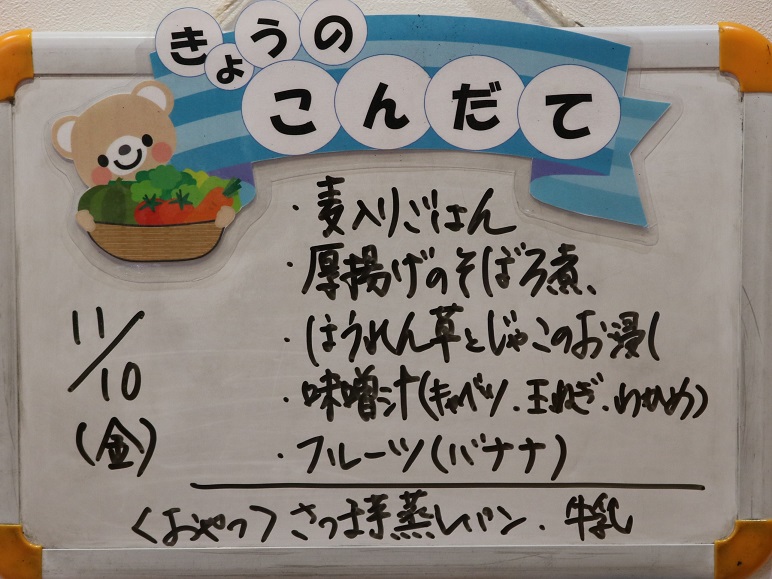 きょうの
こんだて
・麦入りごはん
・厚揚げのそぼろ煮
・ほうれん草とじゃこのお浸し
・味噌汁(キャベツ、玉ねぎ、わかめ)
・フルーツ(バナナ)
11/10
(金)
<おやつ>さつま芋蒸しパン、牛乳